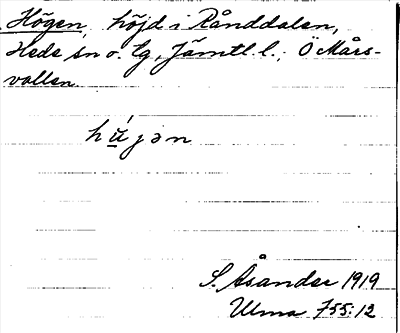 Högen, höjd i Rånddalen,
Hede sn o. tg, Jämtl. l.; Ö Mårs-
vallen.
hújən
S. Åsander 1919
Ulma 755:12